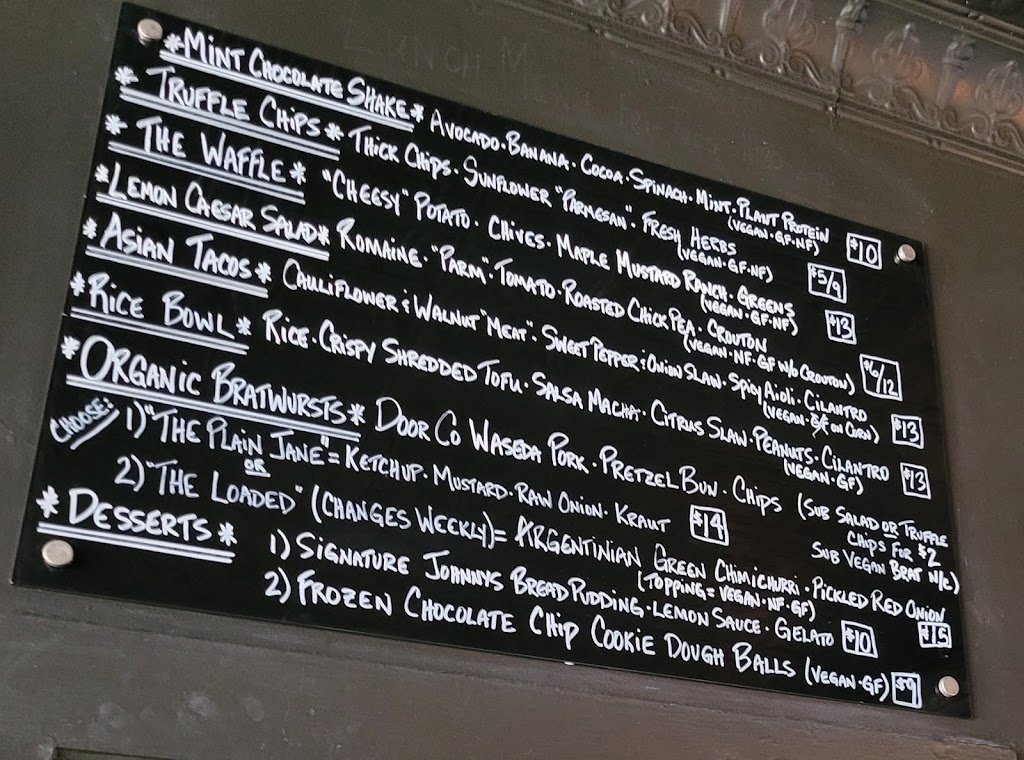 *MINT CHOCOLATE SHAKE* AVOCADO·BANANA·COCOA·SPINACH·MINT·PLANT PROTEIN
(VEGAN·GF·NF) $10
*TRUFFLE CHIPS* THICK CHIPS·SUNFLOWER "PARMESAN"·FRESH HERBS
(VEGAN·GF·NF) $5/9
*THE WAFFLE* "CHEESY" POTATO·CHIVES·MAPLE MUSTARD RANCH·GREENS
(VEGAN·GF·NF) $13
*LEMON CAESAR SALAD* ROMAINE·"PARM"·TOMATO·ROASTED CHICKPEA·CROUTON
(VEGAN·NF·GF W/O CROUTON) $6/12
*ASIAN TACOS* CAULIFLOWER & WALNUT "MEAT"·SWEET PEPPER & ONION SLAW·SPICY AIOLI·CILANTRO
(VEGAN·GF ON CORN) $13
*RICE BOWL* RICE·CRISPY SHREDDED TOFU·SALSA MACHA·CITRUS SLAW·PEANUTS·CILANTRO
(VEGAN·GF) $13
*ORGANIC BRATWURSTS* DOOR CO WASEDA PORK·PRETZEL BUN·CHIPS (SUB SALAD OR TRUFFLE
CHIPS FOR $2
SUB VEGAN BRAT N/C)
CHOOSE: 1) "THE PLAIN JANE" = KETCHUP·MUSTARD·RAW ONION·KRAUT $14
OR
2) "THE LOADED" (CHANGES WEEKLY) = ARGENTINIAN GREEN CHIMICHURRI·PICKLED RED ONION
(TOPPING = VEGAN·NF·GF) $15
*DESSERTS* 1) SIGNATURE JOHNNYS BREAD PUDDING·LEMON SAUCE·GELATO $10
2) FROZEN CHOCOLATE CHIP COOKIE DOUGH BALLS (VEGAN·GF) $9